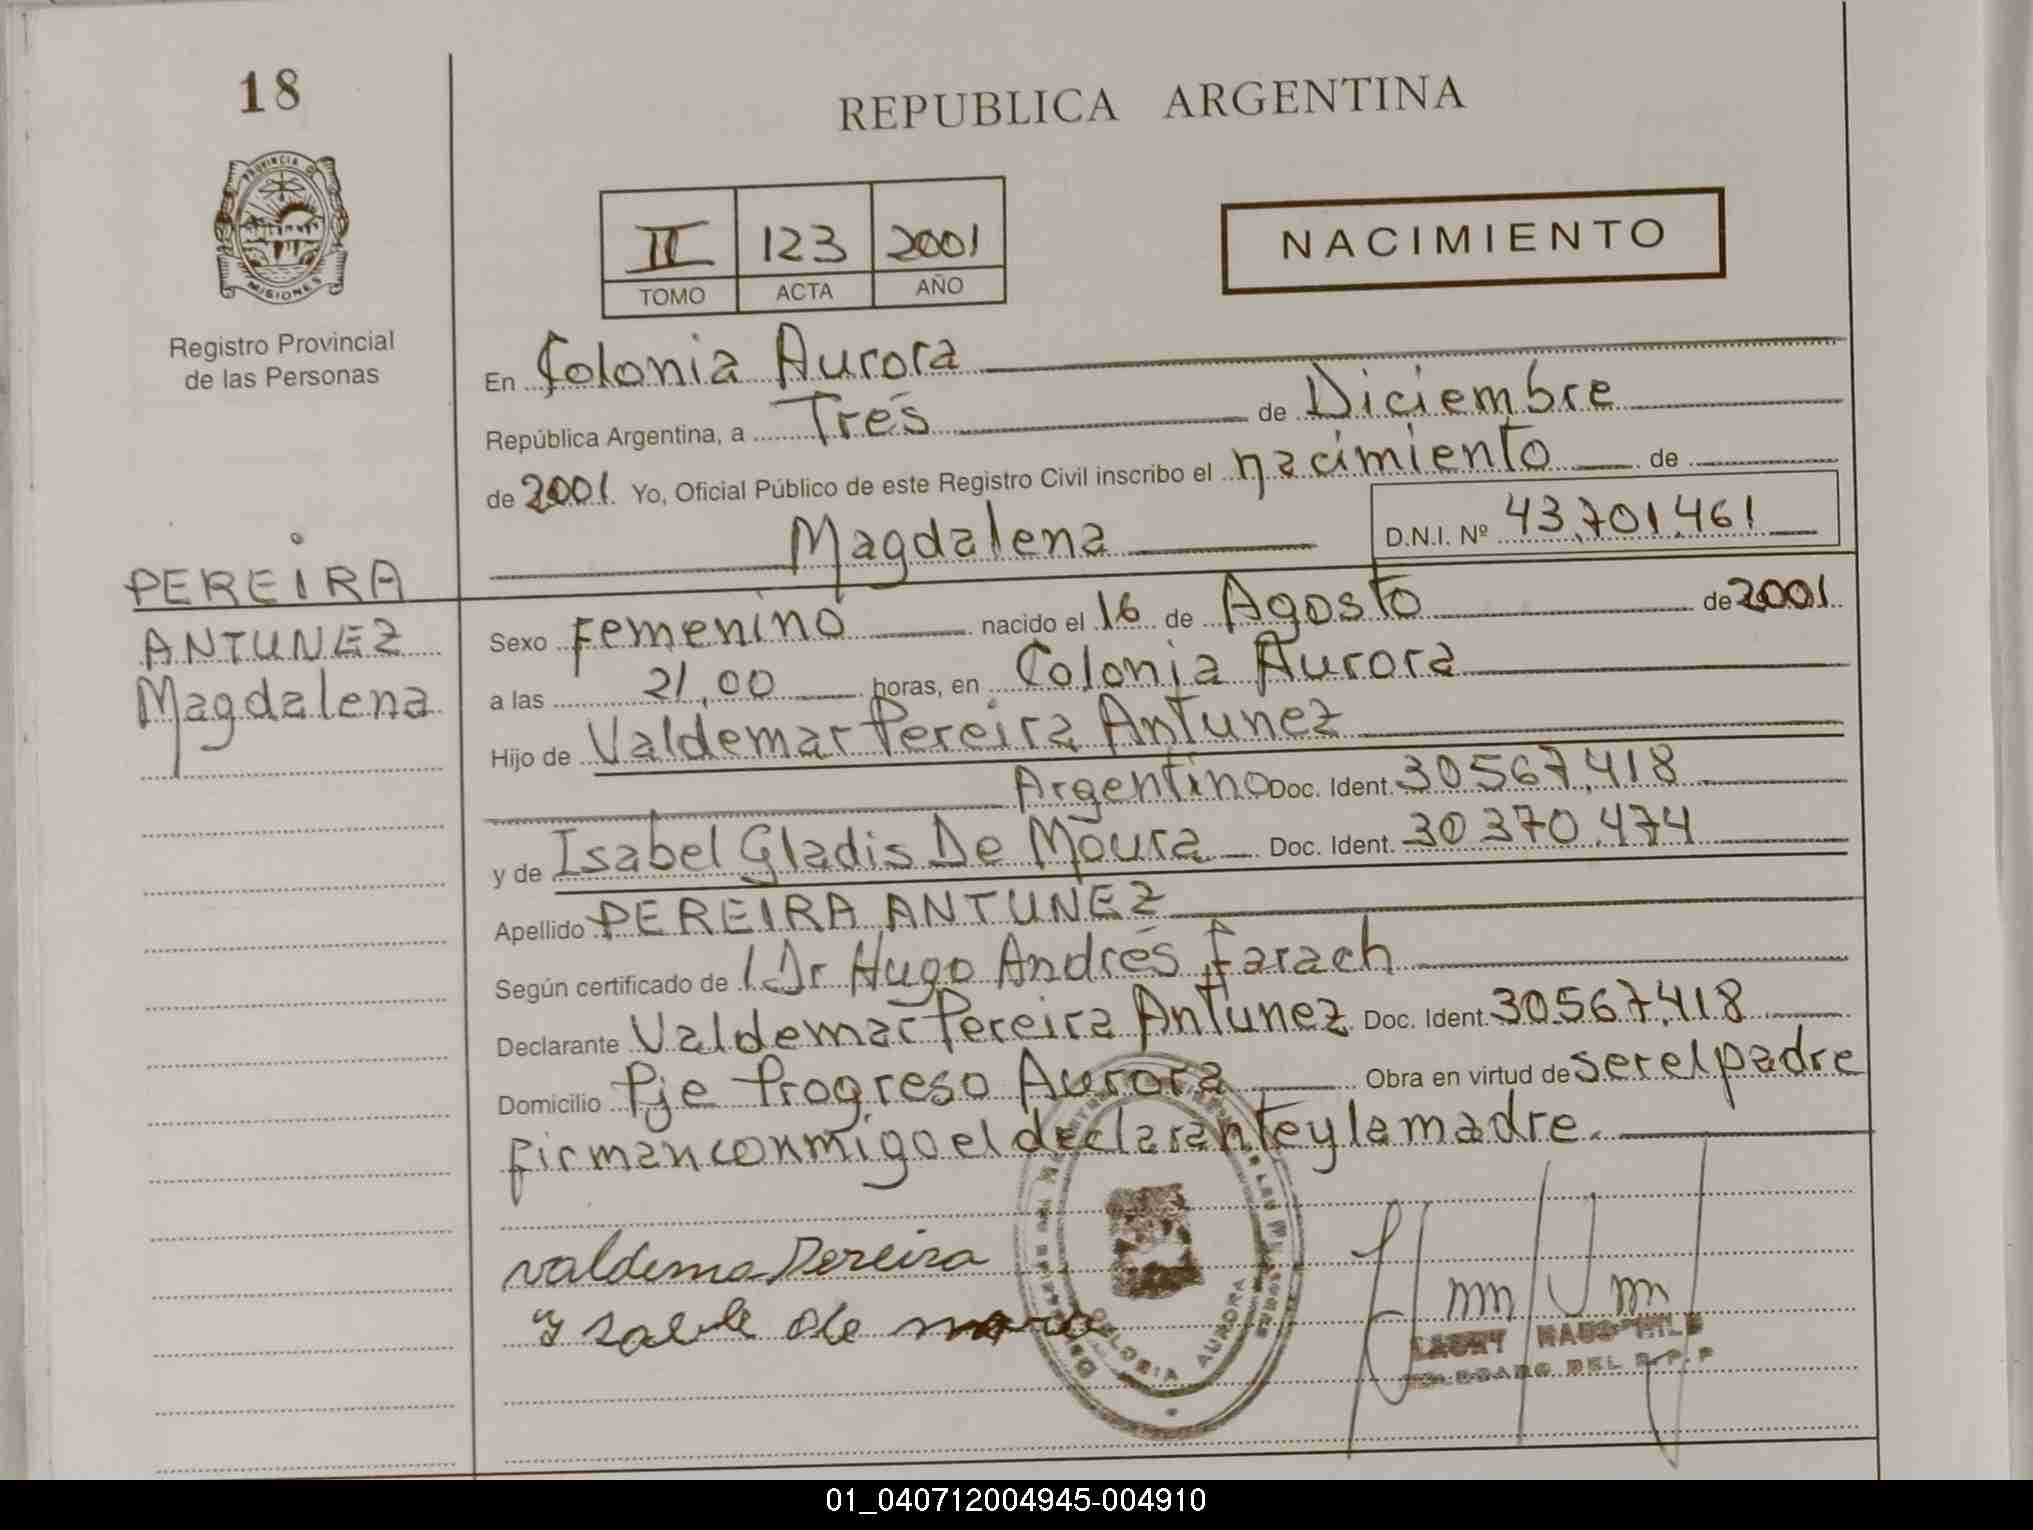 18
REPUBLICA ARGENTINA
PROVINCIA DE
MISIONES
Registro Provincial
de las Personas
II 123 2001
TOMO ACTA AÑO
NACIMIENTO
En Colonia Aurora
República Argentina, a Tres de Diciembre
de 2001 Yo, Oficial Público de este Registro Civil inscribo el nacimiento de
Magdalena D.N.I. Nº 43.701.461
PEREIRA
ANTUNEZ
Magdalena
Sexo Femenino nacido el 16 de Agosto de 2001
a las 21,00 horas, en Colonia Aurora
Hijo de Valdemar Pereira Antunez
Argentino Doc. Ident. 30.567.418
y de Isabel Gladis De Moura Doc. Ident. 30370.474
Apellido PEREIRA ANTUNEZ
Según certificado de Dr Hugo Andrés Farach
Declarante Valdemar Pereira Antunez Doc. Ident. 30.567.418
Domicilio Pje Progreso Aurora Obra en virtud de ser el padre
firman conmigo el declarante y la madre.
valdema Pereira
de
COLONIA AURORA
DEL R.P.P
01_040712004945-004910